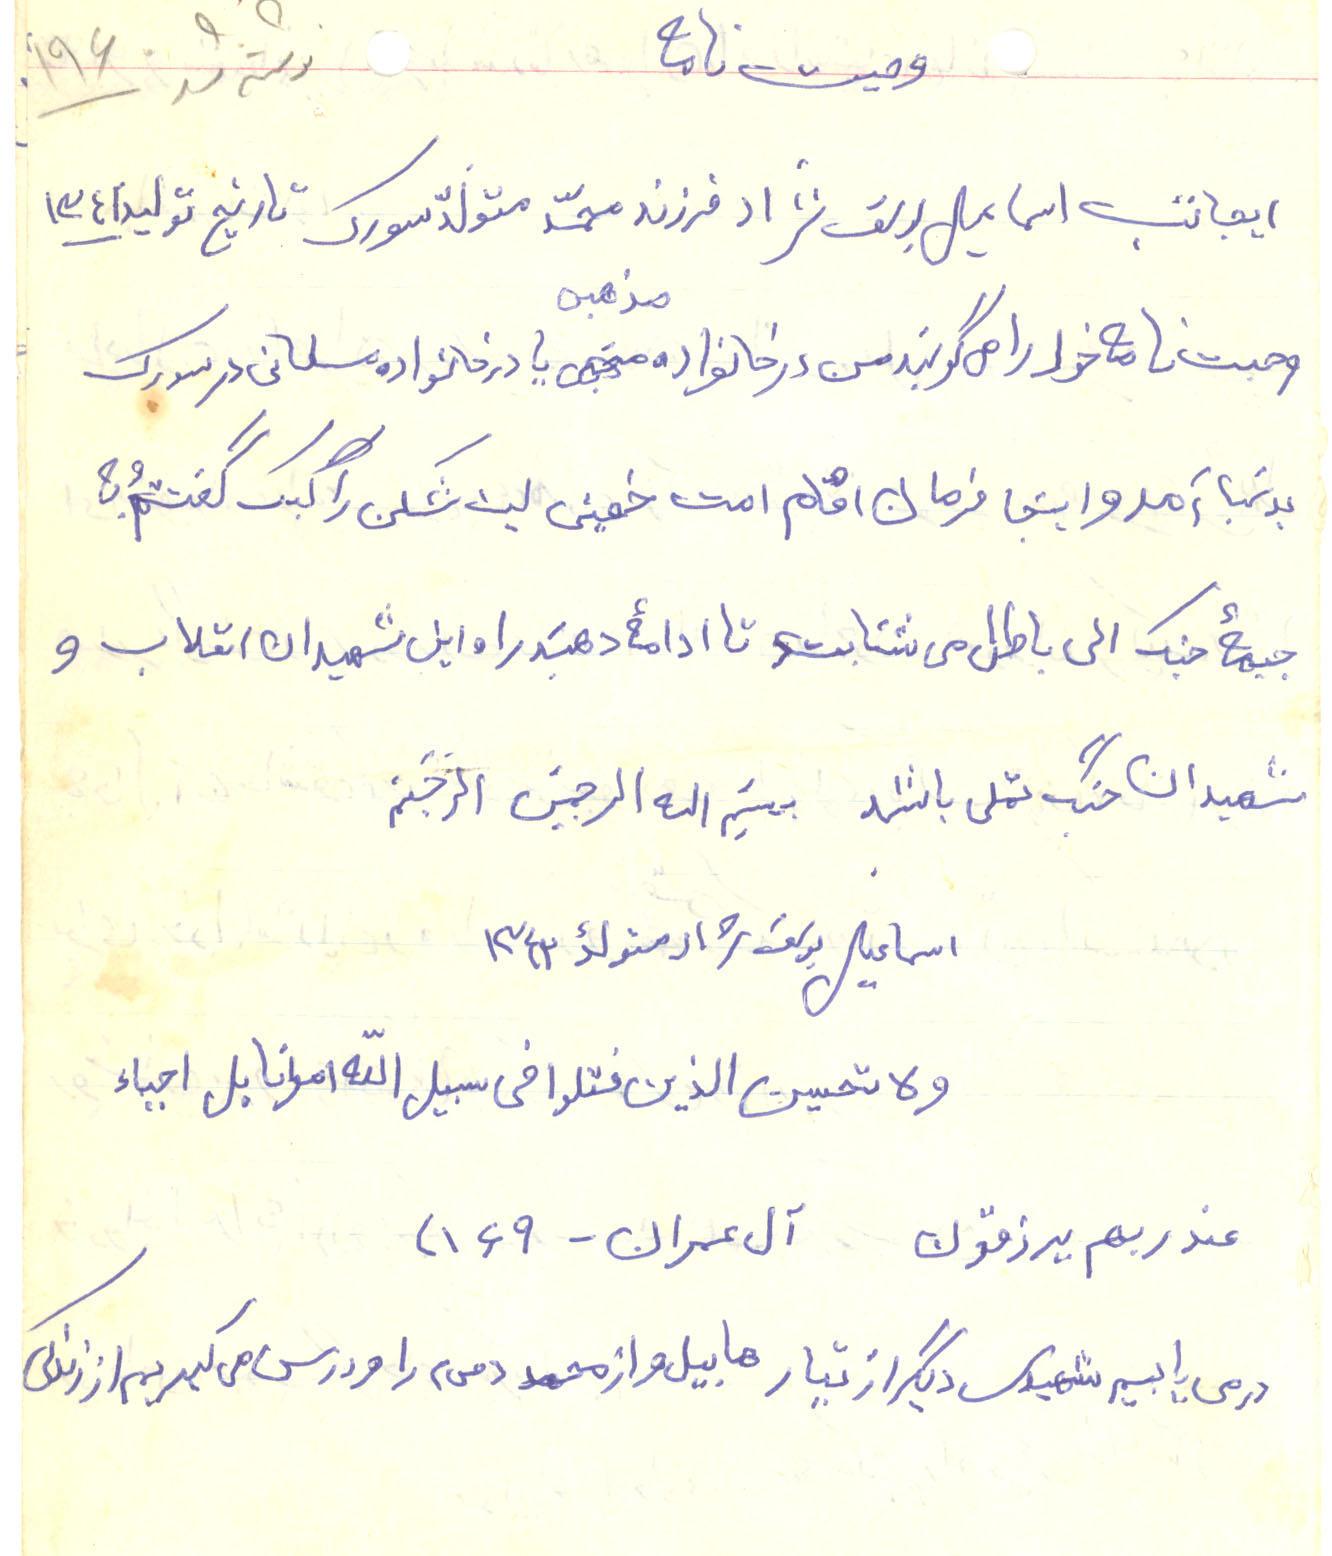 نوشته شد ۱۹۶
وصیت نامه
اینجانب اسماعیل یوسف نژاد فرزند محمّد متولّد سورک تاریخ تولید ۱۳۴۱
مذهبی
وصیت نامه خود را می گویند من در خانواده یا در خانواده مسلمانی در سورک
بدنیا آمد و اینجا فرمان امام امت خمینی بت شکن را لبیک گفتم و به
جبههٔ جنگ الی باطل می شتابت تا ادامهٔ دهند راه این شهیدان انقلاب و
شهیدان جنگ تملی باشد بسم الله الرحمن الرحیم
اسماعیل یوسف نژاد متولد ۱۳۴۳
ولا تحسبن الذین قتلوا فی سبیل اللّه امواتا بل احیاء
عند ربهم یرزقون آل عمران - ۱۶۹)
در می یابیم شهیدی دیگر از تبار هابیل و از محمد دمی را و درس می گیریم از زندگی